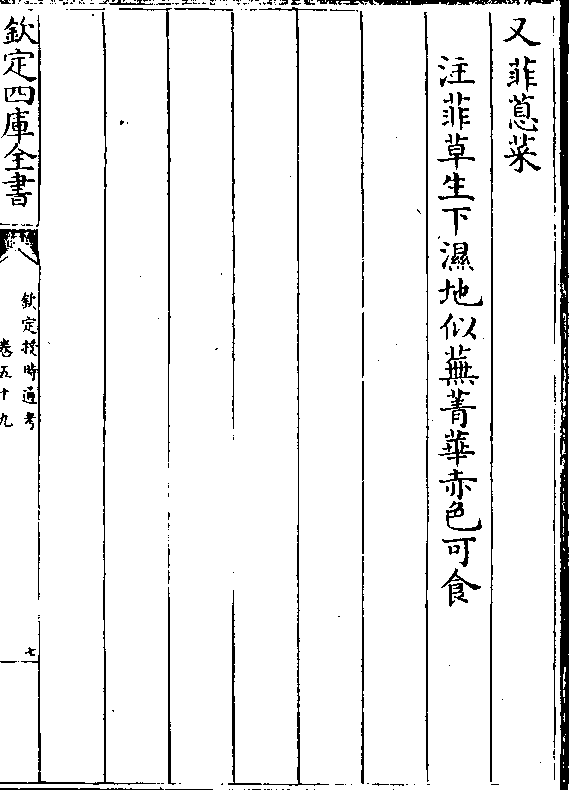 又菲蒠菜
注菲草生下濕地似蕪菁華赤色可食
欽定四庫全書
欽定授時通考
卷五十九
七